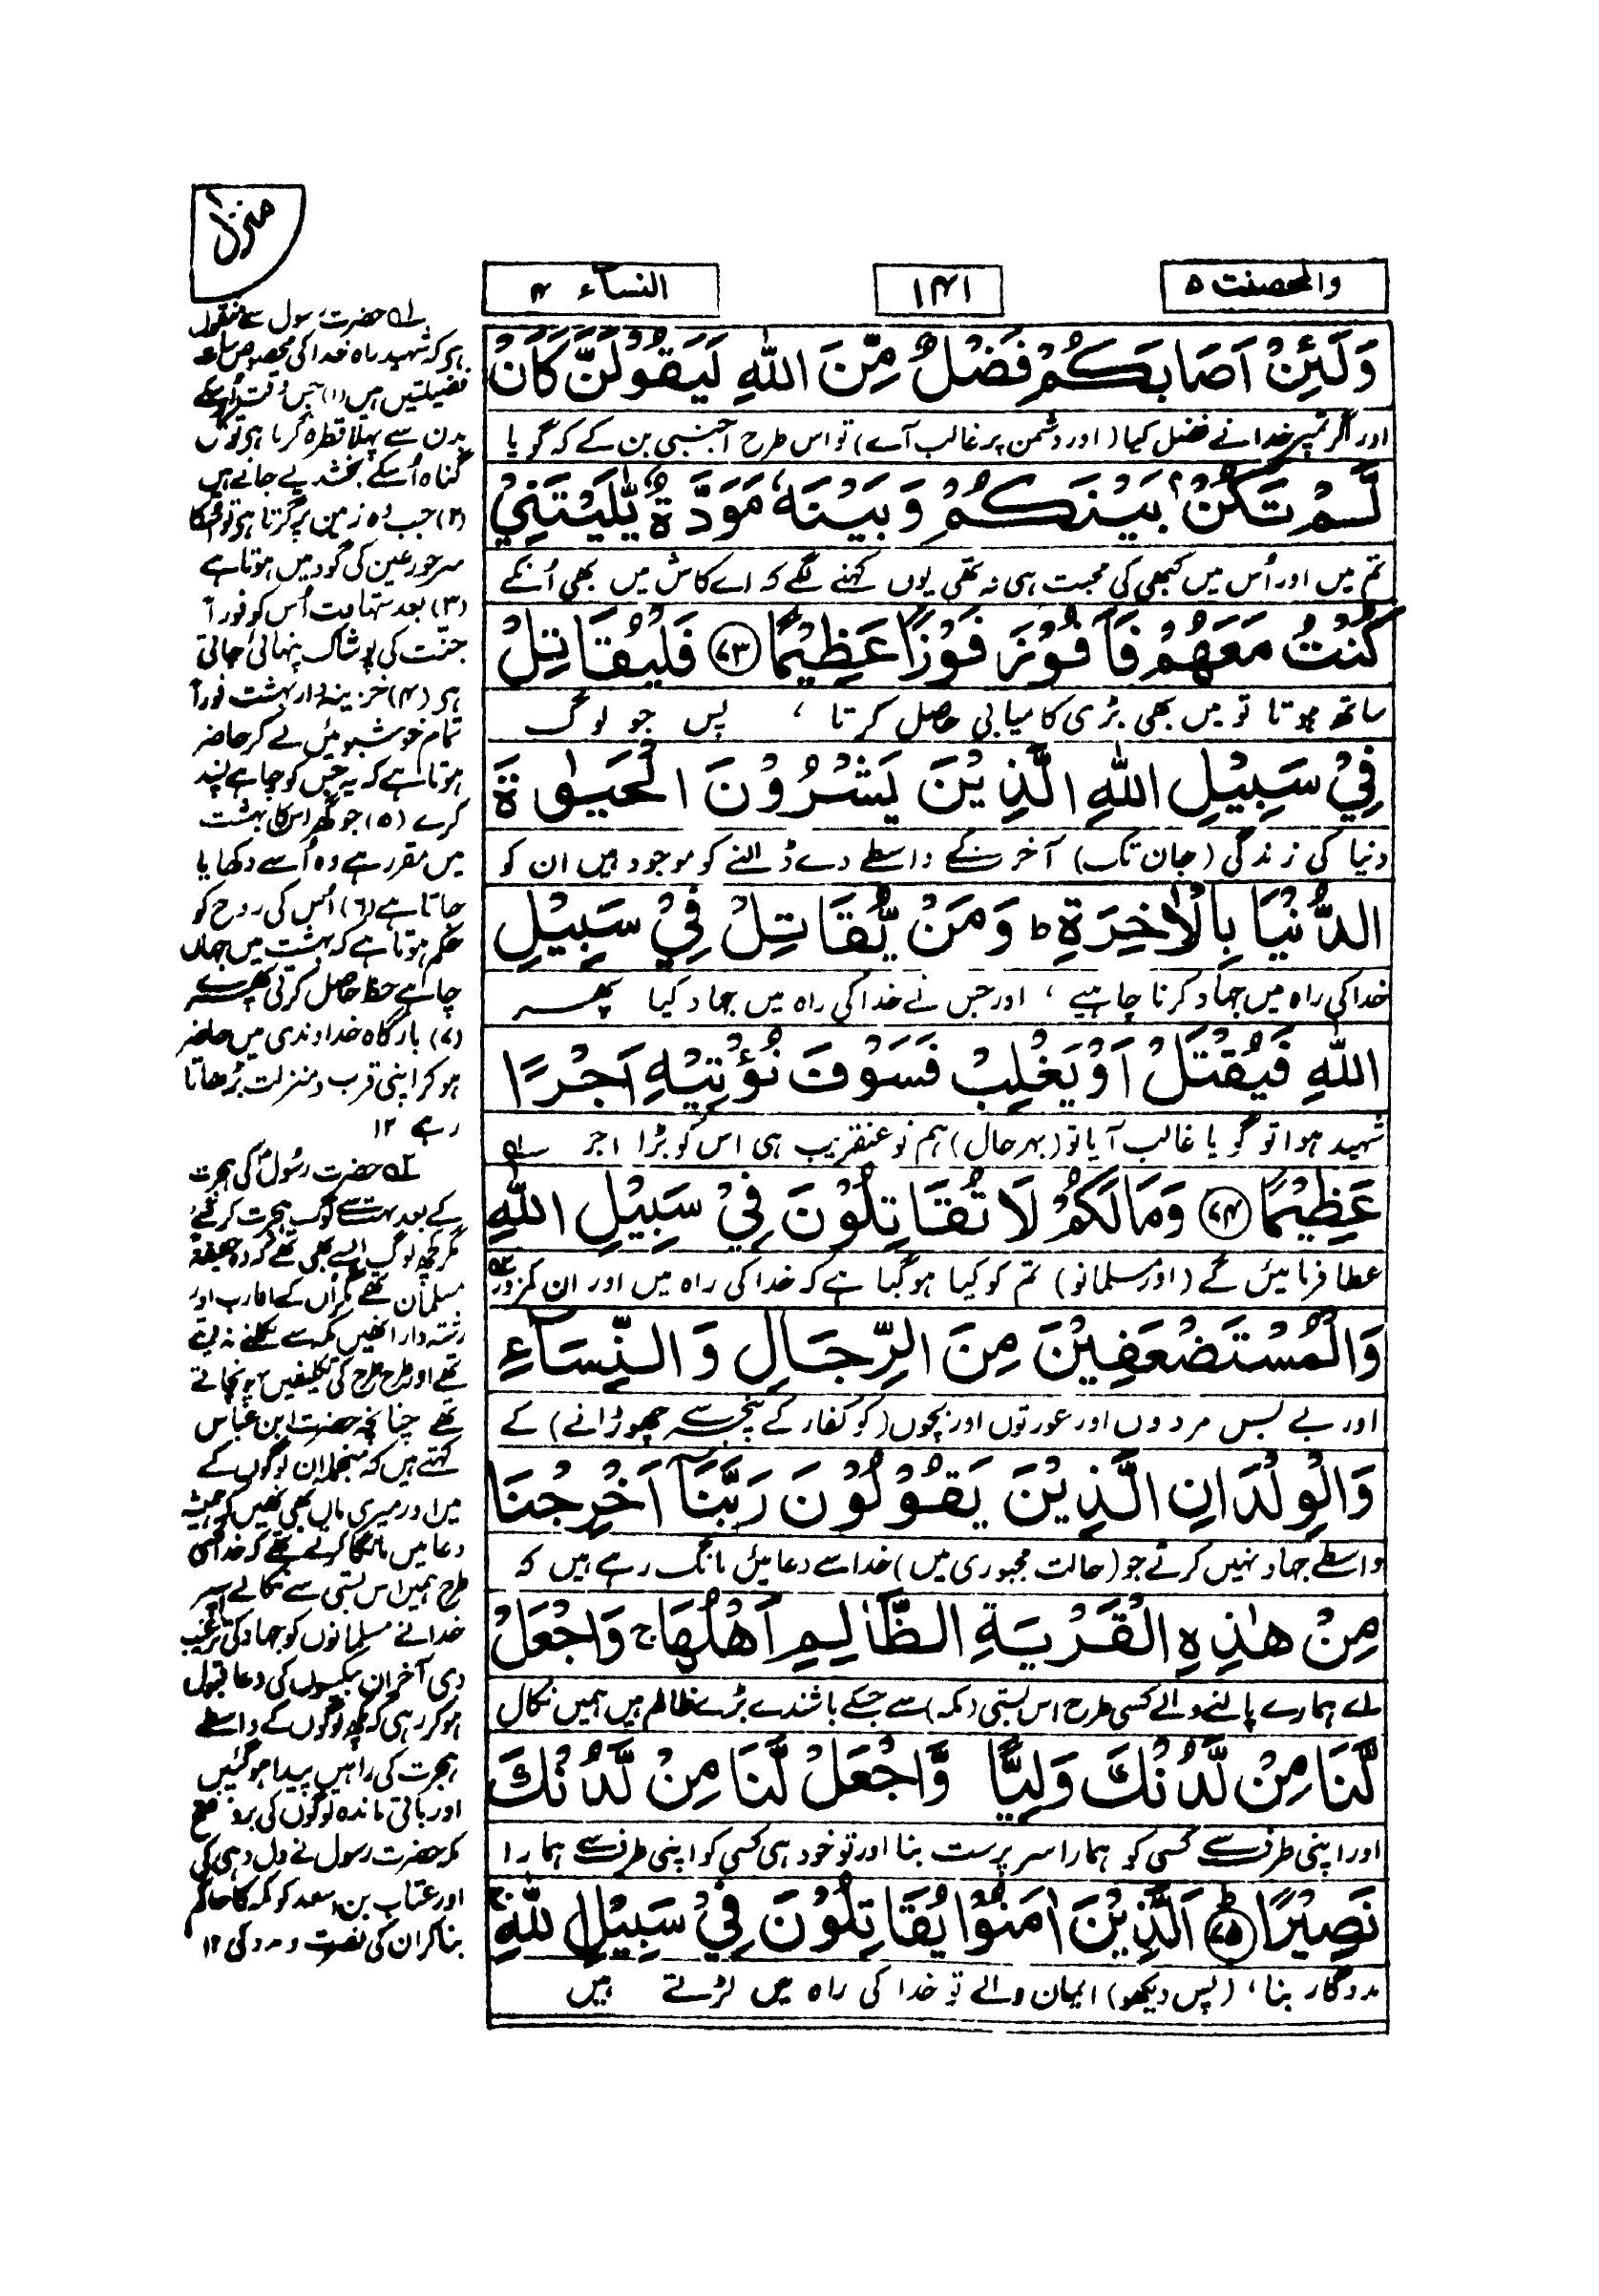 منزل ١
والمحصنت ۵
۱۴۱
النسآء ۴
وَلَئِنْ اَصَابَكُمْ فَضْلٌ مِّنَ اللّٰهِ لَيَقُوْلَنَّ كَاَنْ
اور اگر تمپر خدا نے فضل کیا (اور دشمن پر غالب آے) تو اس طرح اجنبی بن کے کہ گویا
لَّمْ تَكُنْۢ بَيْنَكُمْ وَبَيْنَهٗ مَوَدَّةٌ يّٰلَيْتَنِيْ
تم میں اور اُس میں کبھی کی محبت ہی نہ تھی یوں کہنے لگے کہ اے کاش میں بھی اُنکے
كُنْتُ مَعَهُمْ فَاَفُوْزَ فَوْزًا عَظِيْمًا ﴿۷۳﴾ فَلْيُقَاتِلْ
ساتھ ہوتا تو میں بھی بڑی کامیابی حاصل کرتا ، پس جو لوگ
فِيْ سَبِيْلِ اللّٰهِ الَّذِيْنَ يَشْرُوْنَ الْحَيٰوةَ
دنیا کی زندگی (جان تک) آخرت کے واسطے دے ڈالنے کو موجود ہیں ان کو
الدُّنْيَا بِالْاٰخِرَةِ ط وَمَنْ يُّقَاتِلْ فِيْ سَبِيْلِ
خدا کی راہ میں جہاد کرنا چاہیے ، اور جس نے خدا کی راہ میں جہاد کیا پھر
اللّٰهِ فَيُقْتَلْ اَوْ يَغْلِبْ فَسَوْفَ نُؤْتِيْهِ اَجْرًا
شہید ہوا تو گویا غالب آیا تو (بہرحال) ہم تو عنقریب ہی اس کو بڑا اجر ۱؎
عَظِيْمًا ﴿۷۴﴾ وَمَا لَكُمْ لَا تُقَاتِلُوْنَ فِيْ سَبِيْلِ اللّٰهِ
عطا فرمائیں گے (اور مسلمانو) تم کو کیا ہو گیا ہے کہ خدا کی راہ میں اور ان کمزور ۲؎
وَالْمُسْتَضْعَفِيْنَ مِنَ الرِّجَالِ وَالنِّسَآءِ
اور بے بس مردوں اور عورتوں اور بچوں (کو کفار کے پنجے سے چھوڑانے) کے
وَالْوِلْدَانِ الَّذِيْنَ يَقُوْلُوْنَ رَبَّنَآ اَخْرِجْنَا
واسطے جہاد نہیں کرتے جو (حالت مجبوری میں) خدا سے دعائیں مانگ رہے ہیں کہ
مِنْ هٰذِهِ الْقَرْيَةِ الظَّالِمِ اَهْلُهَا ج وَاجْعَلْ
اے ہمارے پالنے والے کسی طرح اس بستی (مکہ) سے جسکے باشندے بڑے ظالم ہیں ہمیں نکال
لَّنَا مِنْ لَّدُنْكَ وَلِيًّا وَّاجْعَلْ لَّنَا مِنْ لَّدُنْكَ
اور اپنی طرف سے کسی کو ہمارا سرپرست بنا اور تو خود ہی کسی کو اپنی طرف سے ہمارا
نَصِيْرًا ﴿۷۵﴾ ط اَلَّذِيْنَ اٰمَنُوْا يُقَاتِلُوْنَ فِيْ سَبِيْلِ اللّٰهِ ج
مددگار بنا ، (پس دیکھو) ایمان والے تو خدا کی راہ میں لڑتے ہیں
۱؎ حضرت رسول سے منقول
ہو کہ شہید راہ خدا کی مخصوص سات
فضیلتیں ہیں (۱) جس وقت اُسکے
بدن سے پہلا قطرہ گرتا ہی تو کل
گناہ اُسکے بخشدیے جاتے ہیں
(۲) جب وہ زمین پر گرتا ہی تو اُسکا
سر حور عین کی گود میں ہوتا ہے
(۳) بعد شہادت اُس کو فوراً
جنّت کی پوشاک پنہائی جاتی
ہی (۴) خزینہ دار بہشت فوراً
تمام خوشبوئیں لے کر حاضر
ہوتا ہے کہ یہ جس کو چاہے پسند
کرے (۵) جو گھر اس کا بہشت
میں مقرر ہے وہ اُسے دکھایا
جاتا ہے (۶) اُس کی روح کو
حکم ہوتا ہے کہ بہشت میں جہاں
چاہے حظ حاصل کرتی پھرے
(۷) بارگاہ خداوندی میں حاضر
ہو کر اپنی قرب و منزلت بڑھاتا
رہے ۱۲
۲؎ حضرت رسُول کی ہجرت
کے بعد بہت سے لوگ ہجرت کر گئے
مگر کچھ لوگ ایسے بھی تھے کہ وہ حقیقۃً
مسلمان تھے مگر اُن کے اقارب اور
رشتہ دار انھیں مکہ سے نکلنے نہ دیتے
تھے اور طرح طرح کی تکلیفیں پہونچاتے
تھے چنانچہ حضرت ابن عباس
کہتے ہیں کہ منجملہ ان لوگوں کے
میں اور میری ماں بھی تھیں کہ ہمیشہ
دعائیں مانگا کرتے تھے کہ خدا کسی
طرح ہمیں اس بستی سے نکالے
خدا نے مسلمانوں کو جہاد کی ترغیب
دی آخر ان بیکسوں کی دعا قبول
ہو کر رہی کہ کچھ لوگوں کے واسطے
ہجرت کی راہیں پیدا ہو گئیں
اور باقی ماندہ لوگوں کی بروز فتح
مکہ حضرت رسول نے دل دہی کی
اور عتاب بن اسعد کو مکہ کا حاکم
بنا کر ان کی نصرت و مدد کی ۱۲